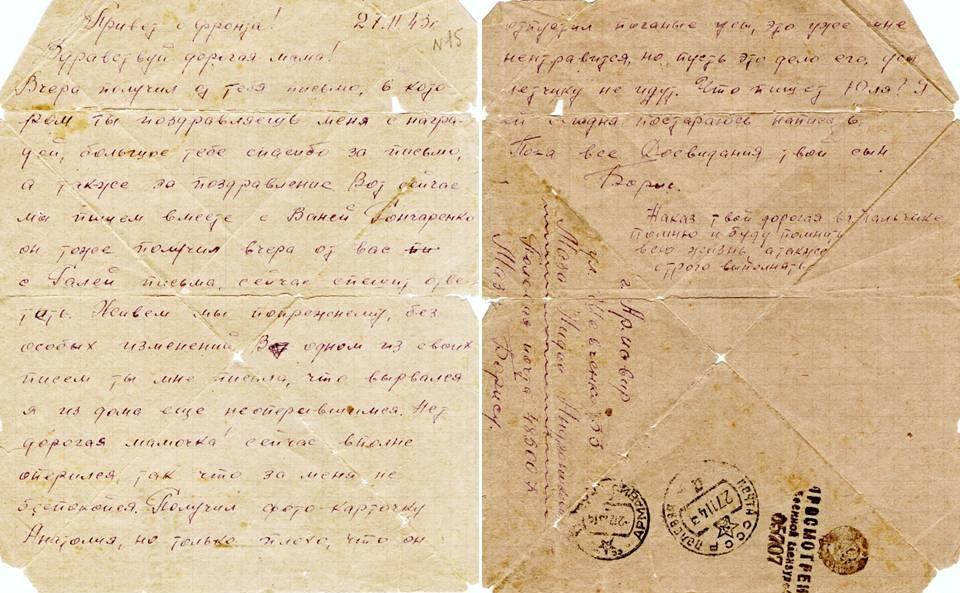 Привет с фронта! 27.11.43г.
N15
Здравствуй дорогая мама!
Вчера получил от тебя письмо, в кото
ром ты поздравляешь меня с награ
дой, большое тебе спасибо за письмо,
а также за поздравление Вот сейчас
мы пишем вместе с Ваней Гончаренко
он тоже получил вчера от вас
с Галей письма, сейчас спешит отве-
тить. Живем мы попрежнему, без
особых изменений В одном из своих
писем ты мне писала, что вырвался
я из дома еще неоперившимся. Нет
дорогая мамочка! сейчас вполне
оперился, так что за меня не
беспокойся. Получил фото-карточку
Анатолия, но только плохо, что он
отпустил поганые усы, это уже мне
ненравится, но пусть это дело его, усы
летчику не идут. Что пишет Юля? Я
ей сегодня постараюсь написать
Пока все Досвидания твой сын
Борис.
Наказ твой дорогая
помню и буду помнить
всю жизнь а также
строго выполнять
г. Армавир
ул. Шевченко 53
Мазя Лидье
Полевая почта 48500
Мазя Борису.
АРМАВИР
ПОЧТА СССР ПОЛЕВАЯ
27 11 43
ПРОСМОТРЕНО
Военной Цензурой
05207